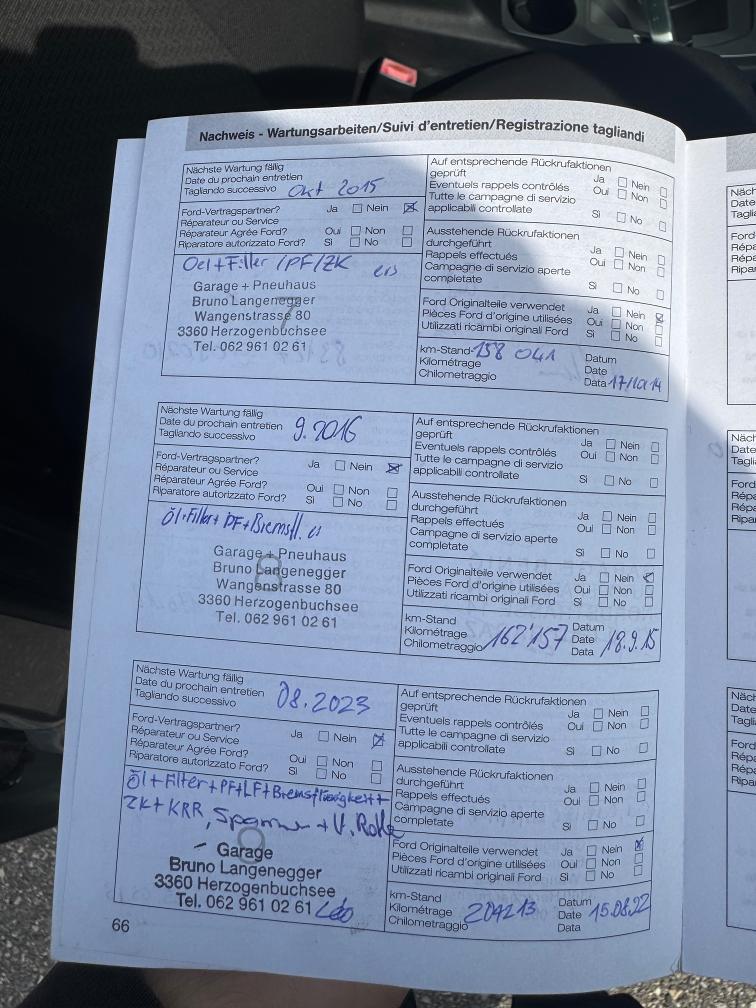 Nachweis - Wartungsarbeiten/Suivi d'entretien/Registrazione tagliandi
Nächste Wartung fällig
Date du prochain entretien
Tagliando successivo Okt 2015
Ford-Vertragspartner? Ja Nein
Réparateur ou Service
Réparateur Agrée Ford? Oui Non
Riparatore autorizzato Ford? Sì No
Oel+Filter /PF/ZK
Garage + Pneuhaus
Bruno Langenegger
Wangenstrasse 80
3360 Herzogenbuchsee
Tel. 062 961 02 61
Auf entsprechende Rückrufaktionen
geprüft Ja Nein
Eventuels rappels contrôlés Oui Non
Tutte le campagne di servizio
applicabili controllate Sì No
Ausstehende Rückrufaktionen
durchgeführt Ja Nein
Rappels effectués Oui Non
Campagne di servizio aperte
completate Sì No
Ford Originalteile verwendet Ja Nein
Pièces Ford d'origine utilisées Oui Non
Utilizzati ricambi originali Ford Sì No
km-Stand 158 041 Datum
Kilométrage Date
Chilometraggio Data 17/10/14
Nächste Wartung fällig
Date du prochain entretien
Tagliando successivo 9.2016
Ford-Vertragspartner? Ja Nein
Réparateur ou Service
Réparateur Agrée Ford? Oui Non
Riparatore autorizzato Ford? Sì No
Öl+Filter + PF+Bremsfl.
Garage + Pneuhaus
Bruno Langenegger
Wangenstrasse 80
3360 Herzogenbuchsee
Tel. 062 961 02 61
Auf entsprechende Rückrufaktionen
geprüft Ja Nein
Eventuels rappels contrôlés Oui Non
Tutte le campagne di servizio
applicabili controllate Sì No
Ausstehende Rückrufaktionen
durchgeführt Ja Nein
Rappels effectués Oui Non
Campagne di servizio aperte
completate Sì No
Ford Originalteile verwendet Ja Nein
Pièces Ford d'origine utilisées Oui Non
Utilizzati ricambi originali Ford Sì No
km-Stand Datum
Kilométrage 162'157 Date 18.9.15
Chilometraggio Data
Nächste Wartung fällig
Date du prochain entretien
Tagliando successivo 08.2023
Ford-Vertragspartner? Ja Nein
Réparateur ou Service
Réparateur Agrée Ford? Oui Non
Riparatore autorizzato Ford? Sì No
Öl+Filter+PF+LF+Bremsflüssigkeit+
ZK+KRR, Spanner + U. Rolle
Garage
Bruno Langenegger
3360 Herzogenbuchsee
Tel. 062 961 02 61
Auf entsprechende Rückrufaktionen
geprüft Ja Nein
Eventuels rappels contrôlés Oui Non
Tutte le campagne di servizio
applicabili controllate Sì No
Ausstehende Rückrufaktionen
durchgeführt Ja Nein
Rappels effectués Oui Non
Campagne di servizio aperte
completate Sì No
Ford Originalteile verwendet Ja Nein
Pièces Ford d'origine utilisées Oui Non
Utilizzati ricambi originali Ford Sì No
km-Stand Datum
Kilométrage 204213 Date 15.08.22
Chilometraggio Data
66